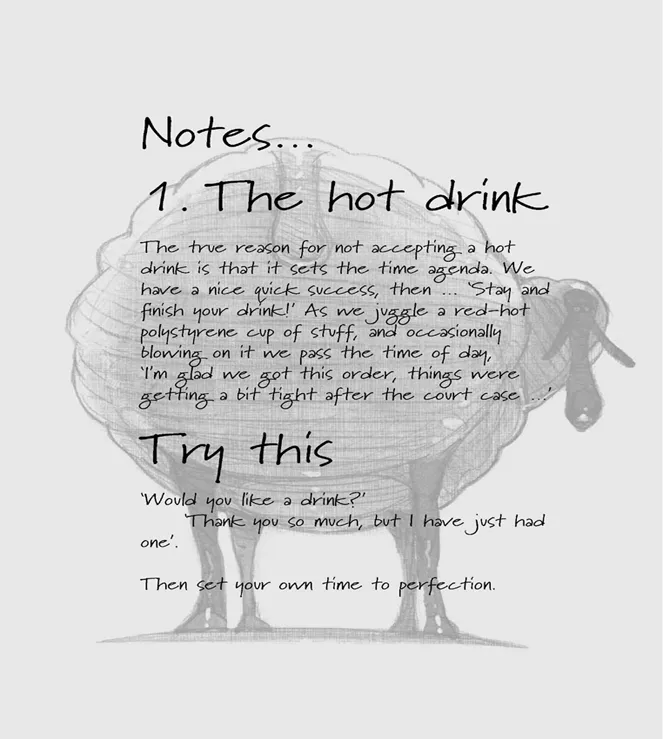 Notes...
1. The hot drink
The true reason for not accepting a hot
drink is that it sets the time agenda. We
have a nice quick success, then ... 'Stay and
finish your drink!' As we juggle a red-hot
polystyrene cup of stuff, and occasionally
blowing on it we pass the time of day,
'I'm glad we got this order, things were
getting a bit tight after the court case ...'
Try this
'Would you like a drink?'
'Thank you so much, but I have just had
one'.
Then set your own time to perfection.